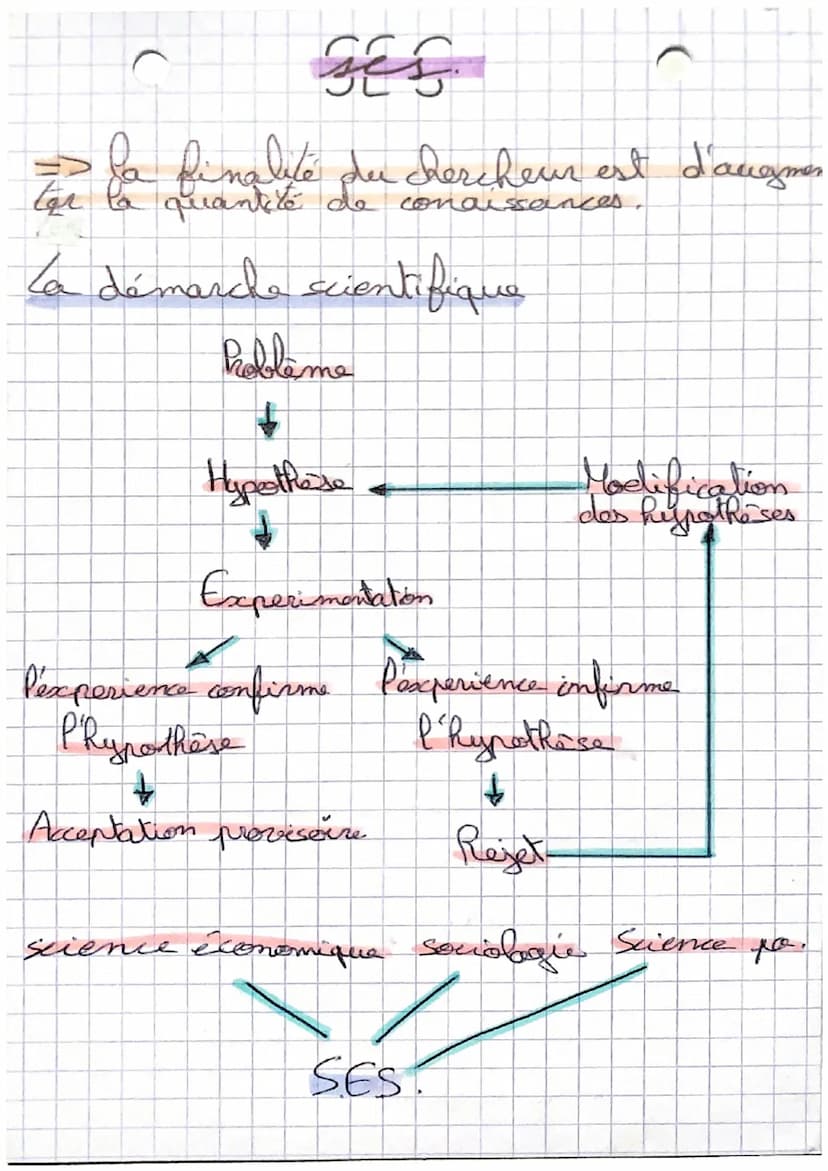 SES
ses.
=> la finalité du chercheur est d'augmen
ter la quantité de conaissances.
La démarche scientifique
Problème
Hypothèse
Modification
des hypothèses
Experimentation
l'éxperience confirme
l'éxperience infirme
l'hypothèse
l'hypothèse
Acceptation provisoire
Rejet
science économique sociologie Science po.
SES.